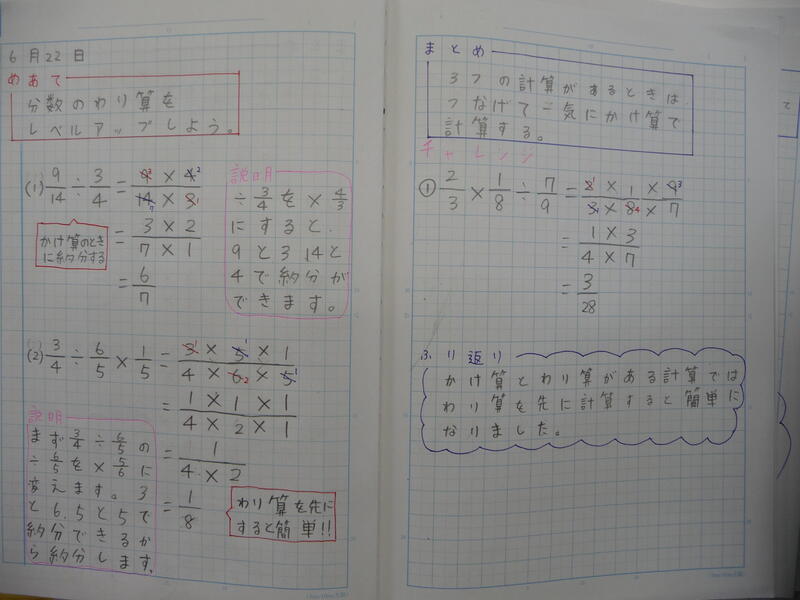 6月22日
めあて
分数のわり算を
レベルアップしよう。
(1) 9/14 ÷ 3/4 = 9³ × 4² / 14₇ × 3₁
= 3 × 2 / 7 × 1
= 6/7
かけ算のとき
に約分する
説明
÷ 3/4 を × 4/3
にすると、
9 と 3 14 と
4 で約分が
できます。
(2) 3/4 ÷ 6/5 × 1/5 = 3¹ × 5¹ × 1 / 4 × 6₂ × 5¹
= 1 × 1 × 1 / 4 × 2 × 1
= 1 / 4 × 2
= 1/8
説明
まず 3/4 ÷ 6/5 の
÷ 6/5 を × 5/6 に
変えます。3
と 6、5 と 5 で
約分できるか
ら約分します。
わり算を先に
すると簡単!!
まとめ
3つの計算があるときは
つなげて一気にかけ算で
計算する。
チャレンジ
① 2/3 × 1/8 ÷ 7/9 = 2¹ × 1 × 9³ / 3₁ × 8₄ × 7
= 1 × 3 / 4 × 7
= 3/28
ふり返り
かけ算とわり算がある計算では
わり算を先に計算すると簡単に
なりました。